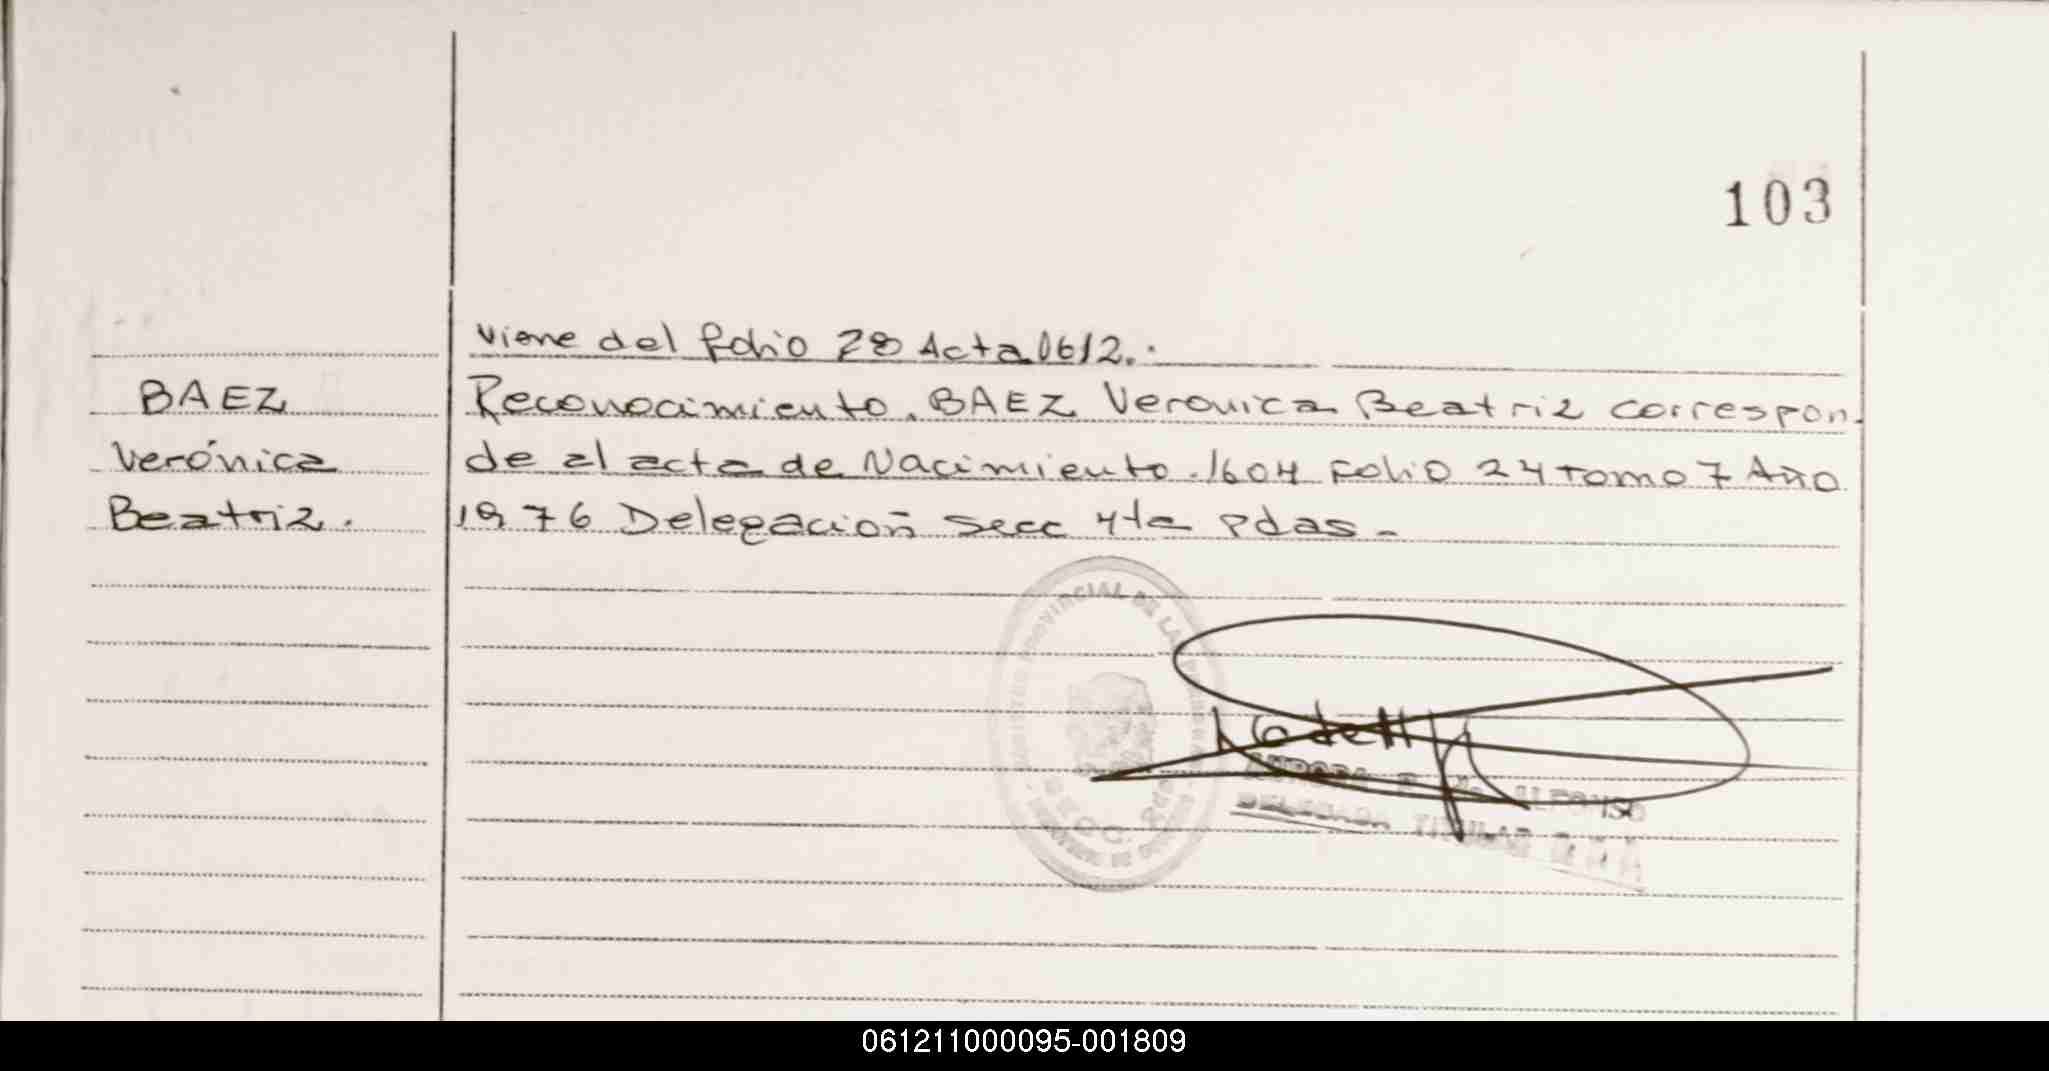 103
Viene del folio 28 Acta 0612.-
BAEZ
Verónica
Beatriz.
Reconocimiento. BAEZ Veronica Beatriz correspon-
de al acta de Nacimiento. 1604 Folio 24 Tomo 7 Año
1976 Delegación Secc 4ta Pdas.-
PROVINCIAL DE LAS
ALFONSO
DELEGADA TITULAR
061211000095-001809